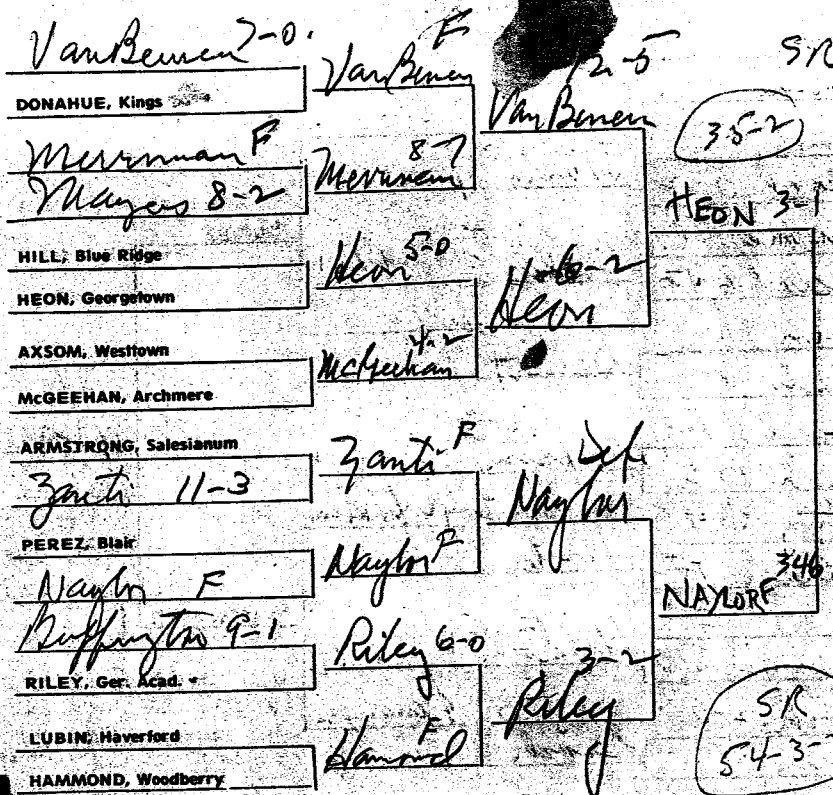 VanBenen 7-0.
DONAHUE, Kings
Merriman F
Mayers 8-2
HILL, Blue Ridge
HEON, Georgetown
AXSOM, Westtown
McGEEHAN, Archmere
ARMSTRONG, Salesianum
Zanti 11-3
PEREZ, Blair
Naylor F
Buffington 9-1
RILEY, Ger. Acad.
LUBIN, Haverford
HAMMOND, Woodberry
VanBenen F
Merriman 8-7
Heon 5-0
McGeehan 4-2
Zanti F
Naylor F
Riley 6-0
Hammond F
VanBenen 12-5
Heon 6-2
Naylor Def
Riley 3-2
SR
35-2
HEON 3-1
NAYLOR F 346
SR
54-3-